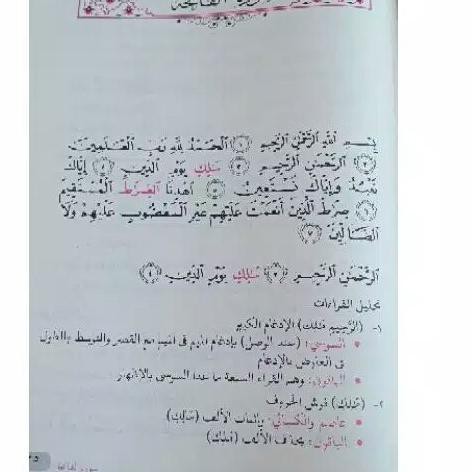 سورة الفاتحة
بِسْمِ اللَّهِ الرَّحْمَٰنِ الرَّحِيمِ ۝١ الْحَمْدُ لِلَّهِ رَبِّ الْعَالَمِينَ
۝٢ الرَّحْمَٰنِ الرَّحِيمِ ۝٣ مَلِكِ يَوْمِ الدِّينِ ۝٤ إِيَّاكَ
نَعْبُدُ وَإِيَّاكَ نَسْتَعِينُ ۝٥ اهْدِنَا الصِّرَٰطَ الْمُسْتَقِيمَ
۝٦ صِرَٰطَ الَّذِينَ أَنْعَمْتَ عَلَيْهِمْ غَيْرِ الْمَغْضُوبِ عَلَيْهِمْ وَلَا
الضَّالِّينَ ۝٧
الرَّحْمَٰنِ الرَّحِيمِ ۝٣ مَلِكِ يَوْمِ الدِّينِ ۝٤
تحليل القراءات
١- (الرَّحِيمِ مَلِكِ) الإدغام الكبير
• السوسي: (عند الوصل) بإدغام الميم في الميم مع القصر والتوسط والطول
في العارض بالإدغام
• الباقون: وهم القراء السبعة ما عدا السوسي بالإظهار
٢- (مَلِكِ) فرش الحروف
• عاصم والكسائي: بإثبات الألف (مَالِكِ)
• الباقون: بحذف الألف (مَلِكِ)
سورة الفاتحة